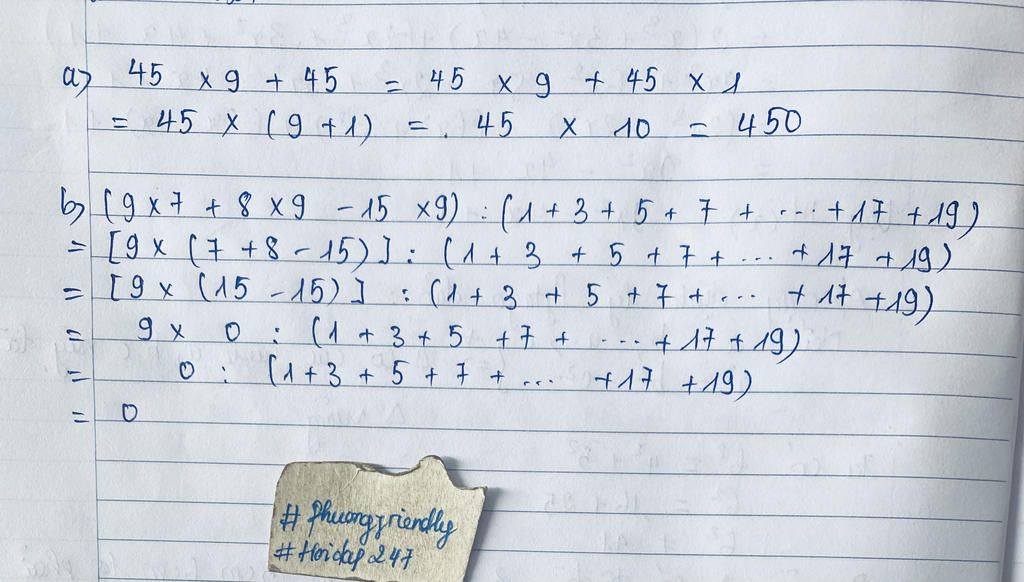 a) 45 x 9 + 45 = 45 x 9 + 45 x 1
= 45 x (9 + 1) = 45 x 10 = 450
b) (9 x 7 + 8 x 9 - 15 x 9) : (1 + 3 + 5 + 7 + ... + 17 + 19)
= [9 x (7 + 8 - 15)] : (1 + 3 + 5 + 7 + ... + 17 + 19)
= [9 x (15 - 15)] : (1 + 3 + 5 + 7 + ... + 17 + 19)
= 9 x 0 : (1 + 3 + 5 + 7 + ... + 17 + 19)
= 0 : (1 + 3 + 5 + 7 + ... + 17 + 19)
= 0
# Phuongfriendly
# Hoidap 247